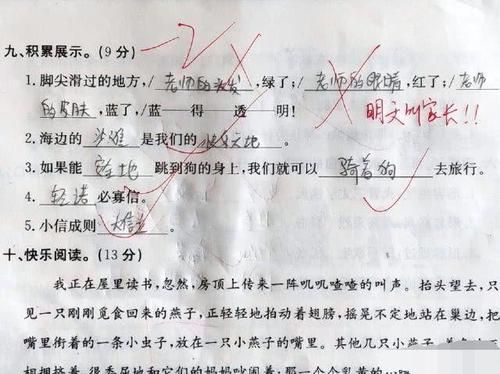 九、积累展示。(9 分)
-2
1.脚尖滑过的地方,/ 老师的头发 ,绿了;/ 老师的眼睛 ,红了;/ 老师
的皮肤 ,蓝了,/蓝——得——透——明!
明天叫家长!!
2.海边的 沙滩 是我们的 。
3.如果能 安全地 跳到狗的身上,我们就可以 骑着狗 去旅行。
4. 轻诺 必寡信。
5.小信成则 大信立 。
十、快乐阅读。(13 分)
我正在屋里读书,忽然,房顶上传来一阵叽叽喳喳的叫声。抬头望去,只
见一只刚刚觅食回来的燕子,正轻轻地拍动着翅膀,摇晃不定地站在巢边,把
嘴里衔着的一条小虫子,放在一只小燕子的嘴里。其他几只小燕子
相拥挤着,很委屈地和它们的妈妈吵闹着;那一个个乳黄的